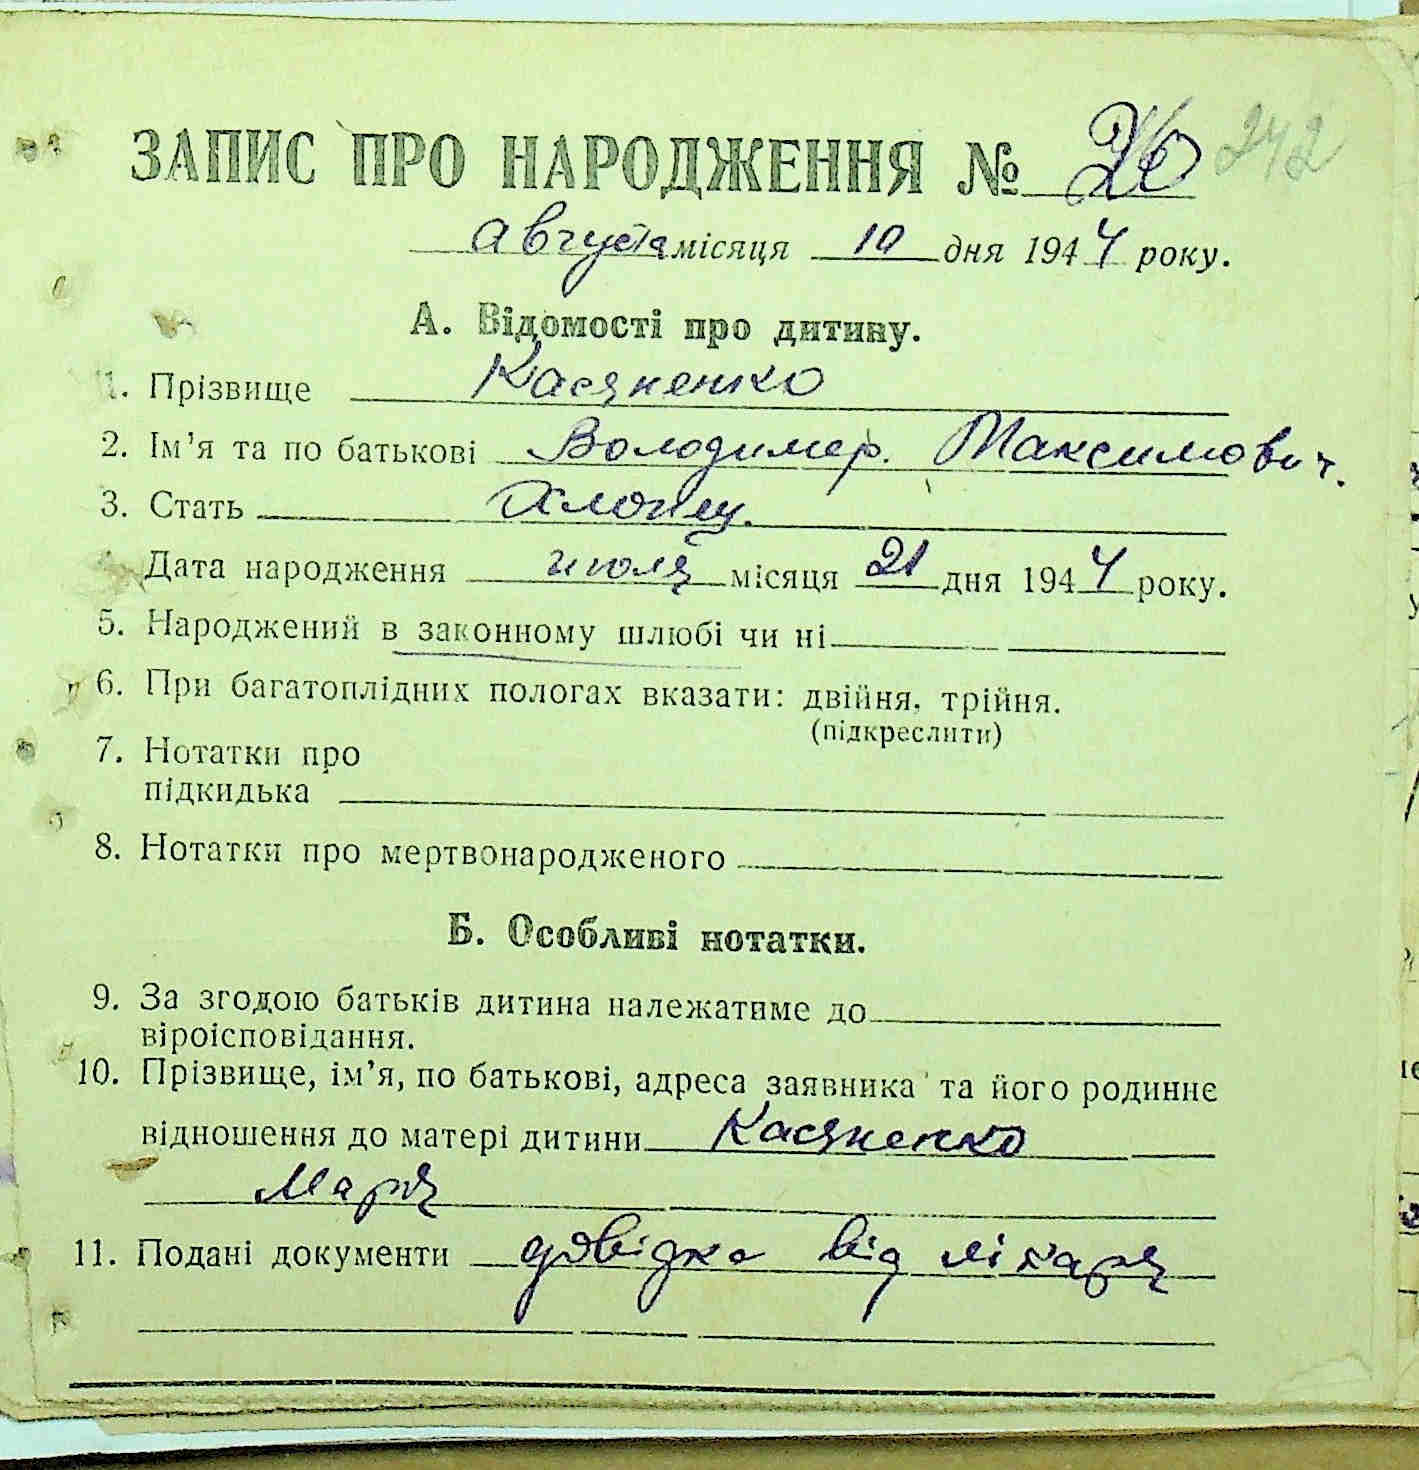 ЗАПИС ПРО НАРОДЖЕННЯ № 26 242
августа місяця 10 дня 1944 року.
А. Відомості про дитину.
1. Прізвище Касяненко
2. Ім'я та по батькові Володимер. Максимович.
3. Стать Хлопец.
Дата народження июля місяця 21 дня 1944 року.
5. Народжений в законному шлюбі чи ні
6. При багатоплідних пологах вказати: двійня, трійня.
(підкреслити)
7. Нотатки про
підкидька
8. Нотатки про мертвонародженого
Б. Особливі нотатки.
9. За згодою батьків дитина належатиме до
віроісповідання.
10. Прізвище, ім'я, по батькові, адреса заявника та його родинне
відношення до матері дитини Касяненко
Марія
11. Подані документи довідка від лікаря